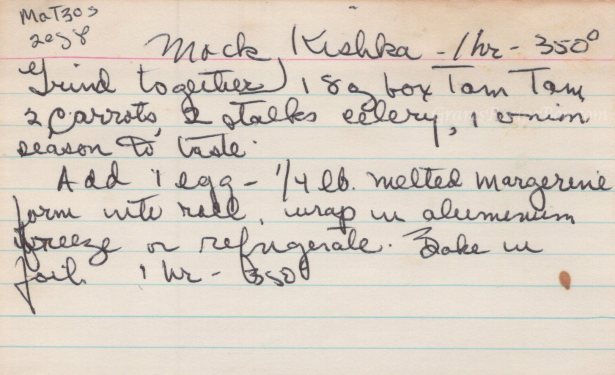 Matzos
Mock Kishka - 1 hr - 350°
Grind together 1 8 oz box Tam Tam
2 carrots, 2 stalks celery, 1 onion
season to taste.
Add 1 egg - 1/4 lb. melted margerine
form into roll, wrap in alumenum
freeze or refrigerate. Bake in
foil. 1 hr - 350°